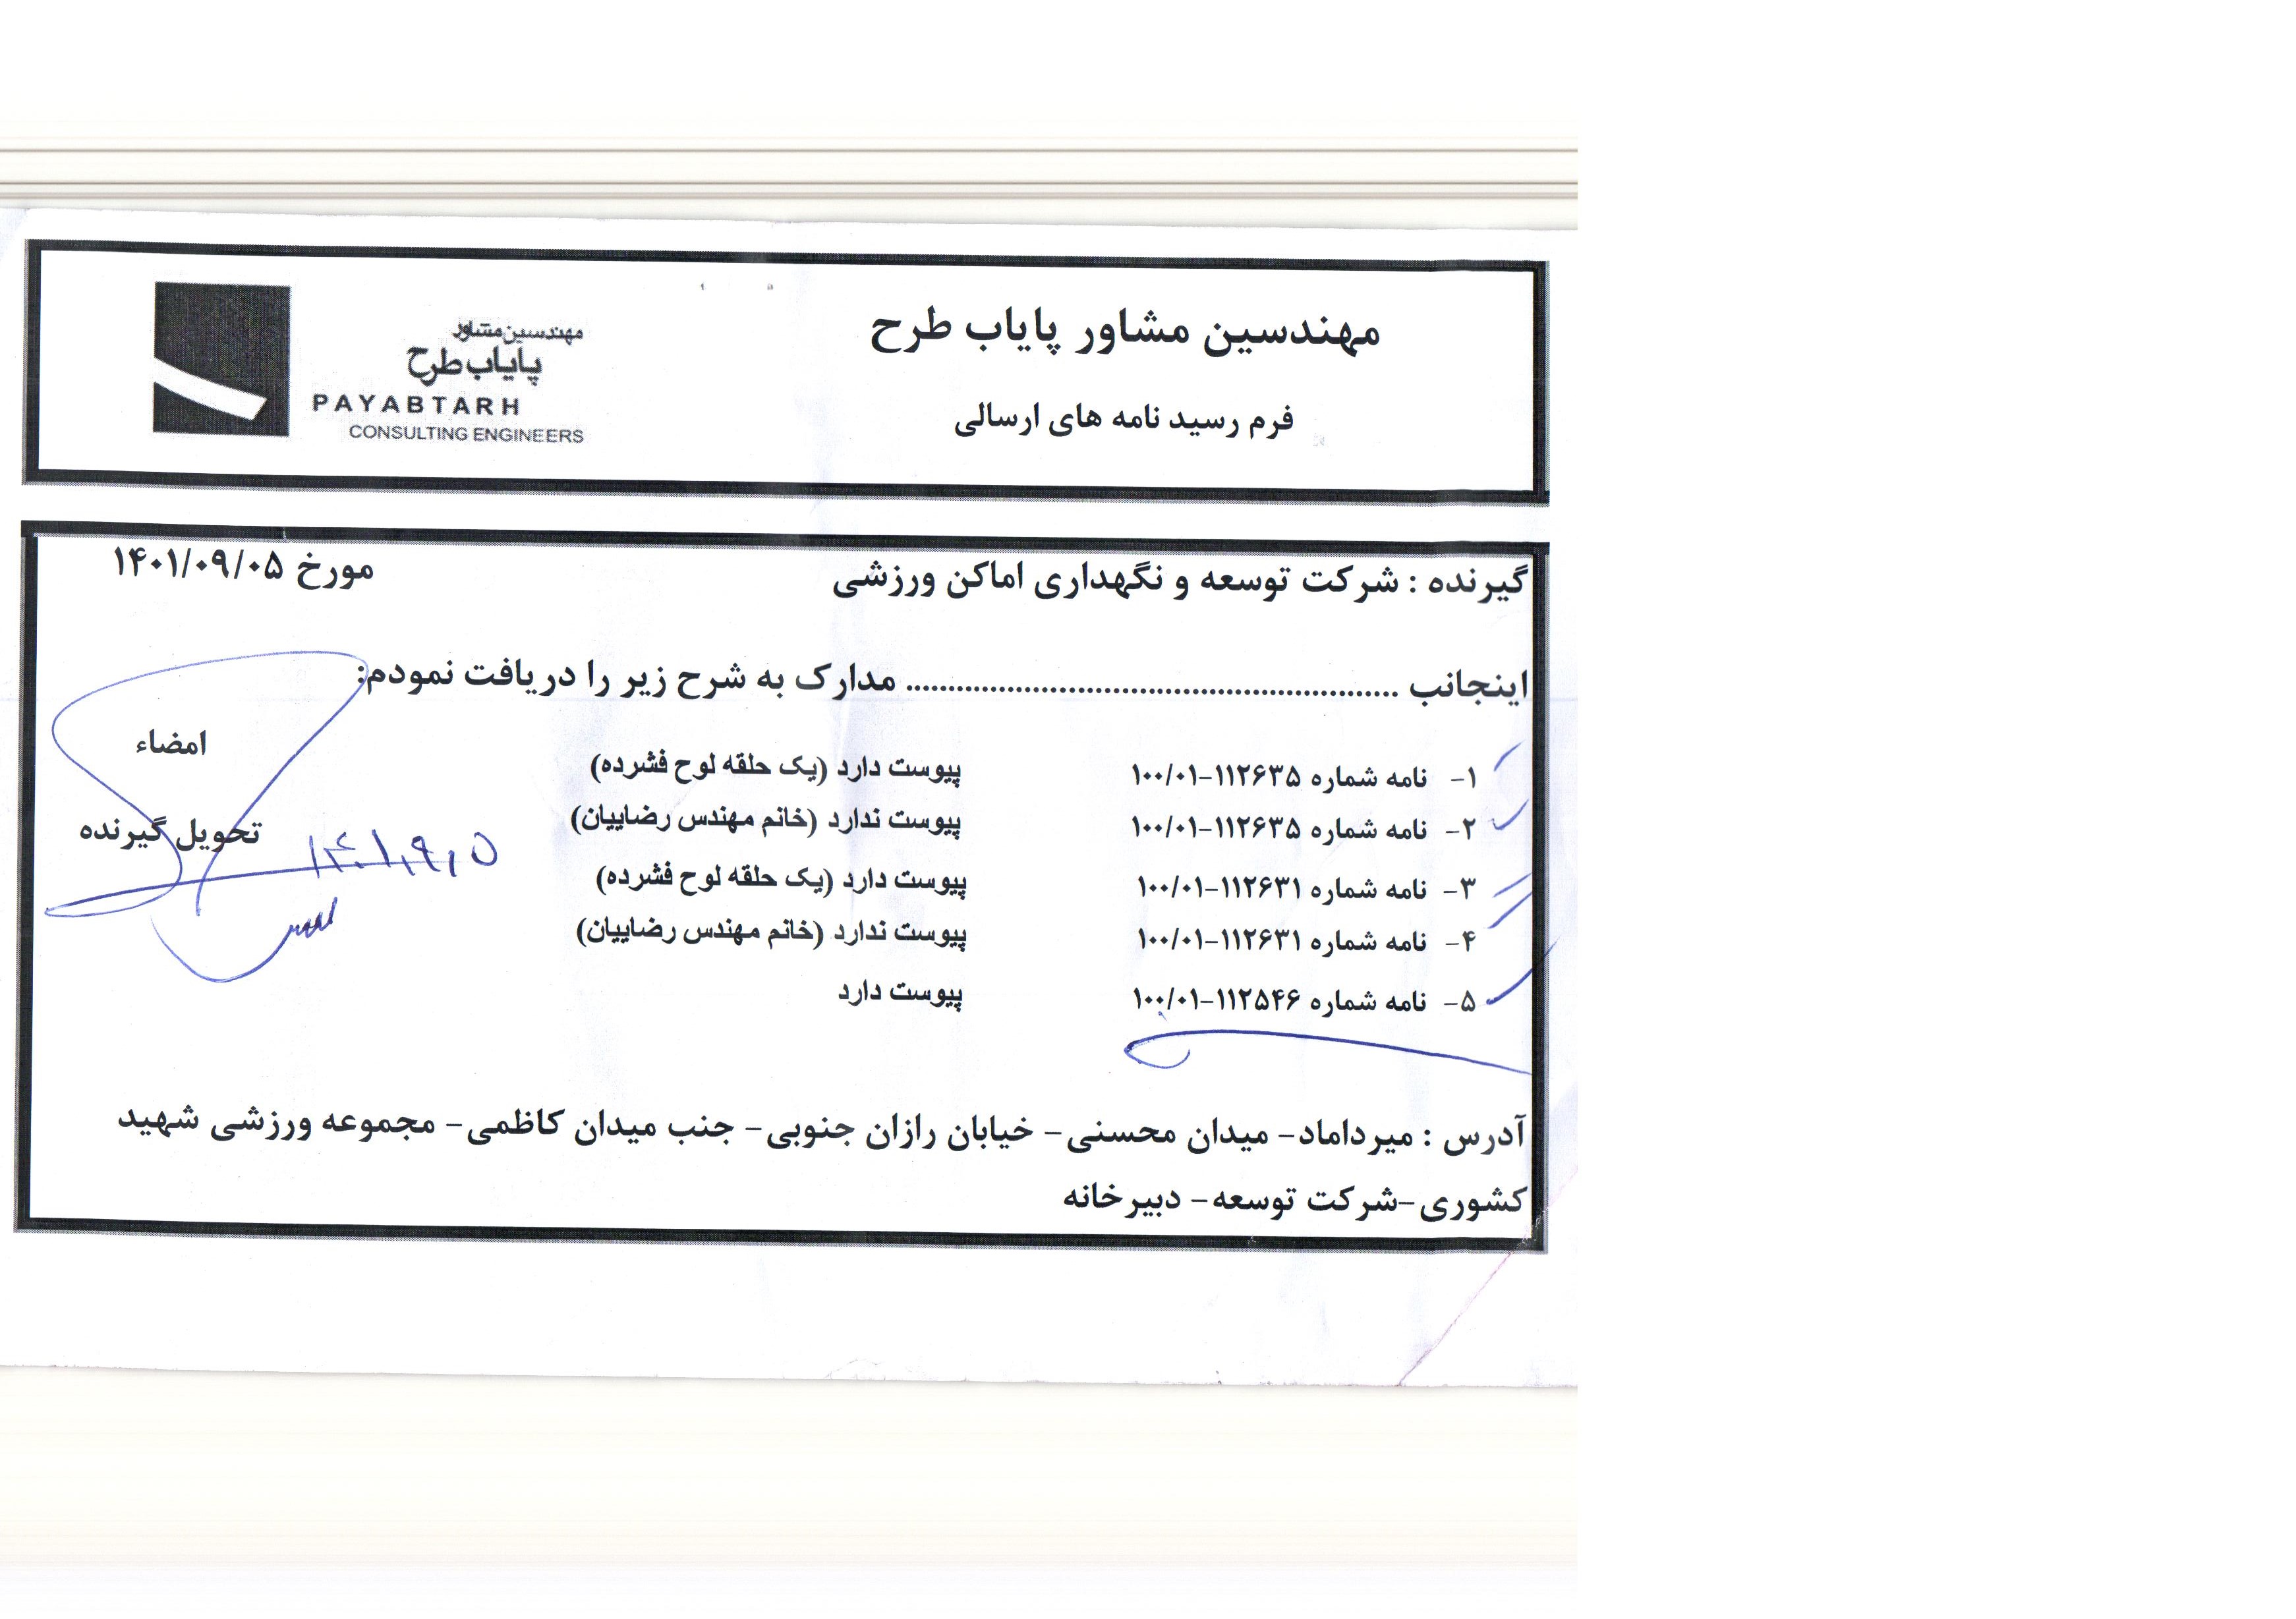 مهندسین مشاور پایاب طرح
فرم رسید نامه های ارسالی
مهندسین مشاور
پایاب طرح
PAYABTARH
CONSULTING ENGINEERS
گیرنده : شرکت توسعه و نگهداری اماکن ورزشی مورخ ۱۴۰۱/۰۹/۰۵
اینجانب .......................................................... مدارک به شرح زیر را دریافت نمودم:
امضاء
تحویل گیرنده
۱۴۰۱,۹,۵
۱- نامه شماره ۱۱۲۶۳۵-۱۰۰/۰۱ پیوست دارد (یک حلقه لوح فشرده)
۲- نامه شماره ۱۱۲۶۳۵-۱۰۰/۰۱ پیوست ندارد (خانم مهندس رضاییان)
۳- نامه شماره ۱۱۲۶۳۱-۱۰۰/۰۱ پیوست دارد (یک حلقه لوح فشرده)
۴- نامه شماره ۱۱۲۶۳۱-۱۰۰/۰۱ پیوست ندارد (خانم مهندس رضاییان)
۵- نامه شماره ۱۱۲۵۴۶-۱۰۰/۰۱ پیوست دارد
آدرس : میرداماد- میدان محسنی- خیابان رازان جنوبی- جنب میدان کاظمی- مجموعه ورزشی شهید
کشوری-شرکت توسعه- دبیرخانه